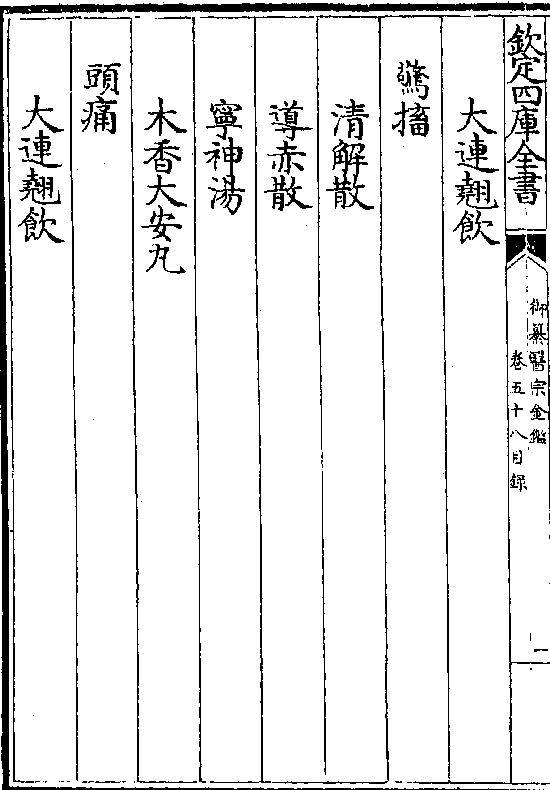 欽定四庫全書
御纂醫宗金鑑
卷五十八目錄
一
大連翹飲
驚搐
清解散
導赤散
寧神湯
木香大安丸
頭痛
大連翹飲